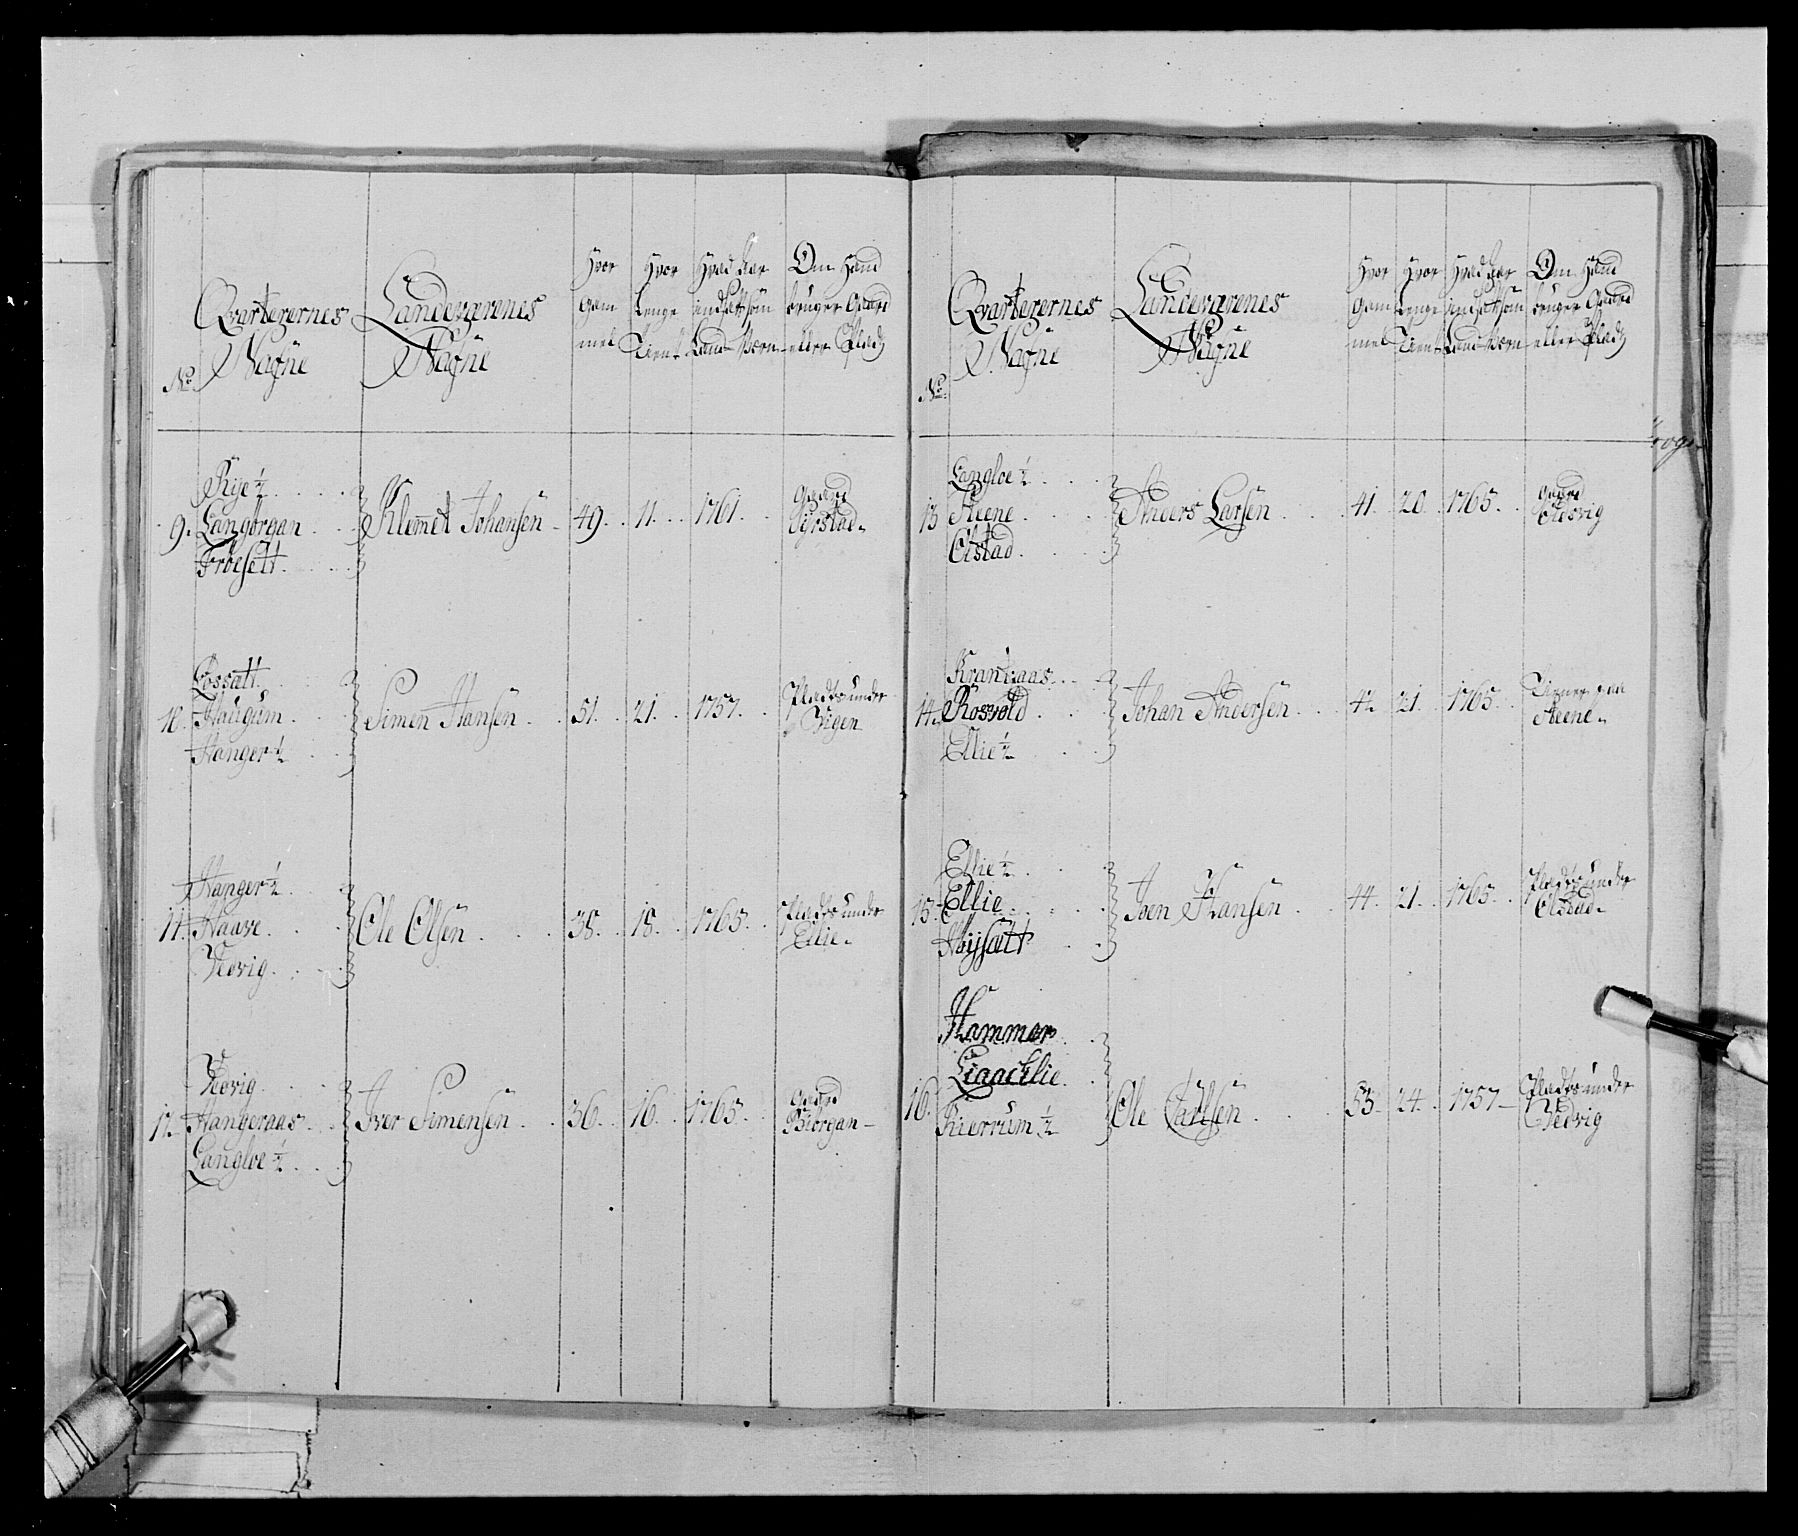 No
Qvarterernes
Nafne
Landeværenes
Nafne
Hvor
gam
mel
Hvor
Lenge
Tient
Hvad Aar
indsat som
Land Vern
Om Hand
bruger Gaard
eller Plads
9.
Rye ½
Langørgan
Klemmet Johansen
49
11
1761
Gaard
10.
Fossætt
Haugum
Hanger ½
Simen Hansen
51
21
1757
Plads under
Vigen
11.
Hanger ½
Haave
Vedvig
Ole Olsen
38
18
1765
Plads under
Ellie
12
Vedvig
Hangeraas
Langloe ½
Iver Simensen
36
16
1765
Gaard
Biørgan
No
Qvarterernes
Nafne
Landeværenes
Nafne
Hvor
gam
mel
Hvor
Lenge
Tient
Hvad Aar
indsat som
Land Vern
Om Hand
bruger Gaard
eller Plads
13
Langloe ½
Steene
Olstad
Anders Larsen
41
20
1765
Gaard
14
Rosvold
Ellie ½
Johan Andersen
42
21
1765
Tiener paa
Steene
15
Ellie ½
Ellie
Høysætt
Iven Hansen
44
21
1765
Plads under
Olstad
16
Hammer
Kierrum ½
Ole Carlsen
53
24
1757
Plads under
Vedvig